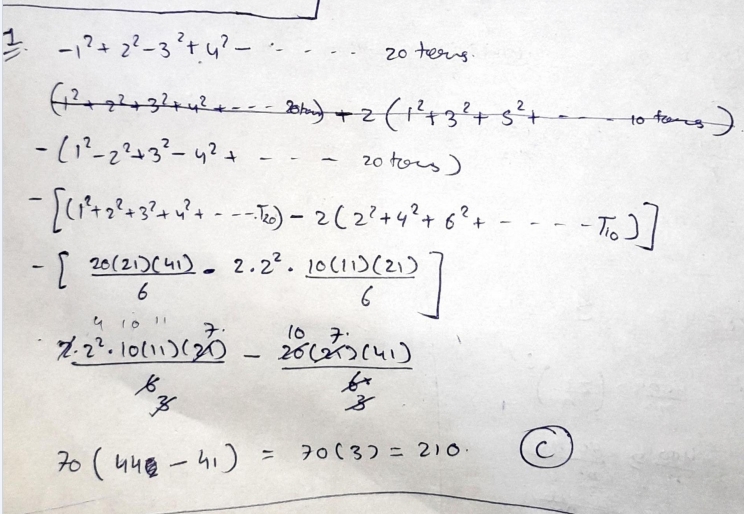 1. -1² + 2² - 3² + 4² - - - - - 20 terms.
(1² + 2² + 3² + 4² + - - - 20 term) + 2 (1² + 3² + 5² + - - - - 10 terms)
- (1² - 2² + 3² - 4² + - - - 20 terms)
- [(1² + 2² + 3² + 4² + - - - T₂₀) - 2 (2² + 4² + 6² + - - - - T₁₀)]
- [ 20(21)(41)/6 - 2·2² · 10(11)(21)/6 ]
4 10 11 7. 10 7.
2·2²·10(11)(21)/6 - 20(21)(41)/6
3 3
70 (44 - 41) = 70(3) = 210. (C)